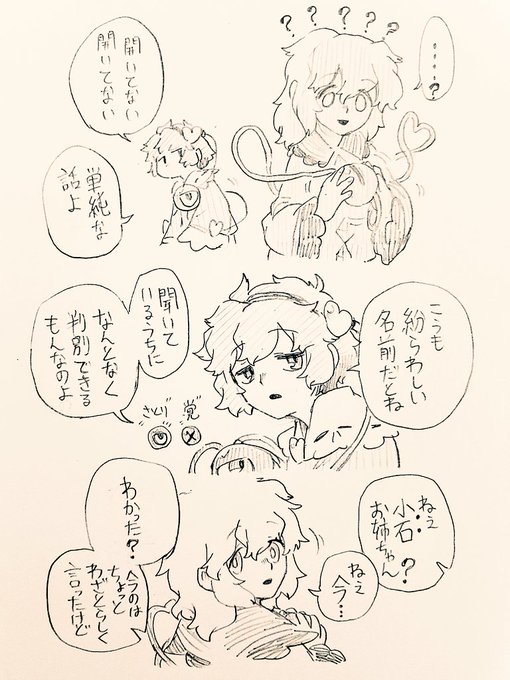 ？？？？？
‥‥‥？
開いてない
開いてない
単純な
話よ
こうも
紛らわしい
名前だとね
聞いて
いるうちに
なんとなく
判別できる
もんなのよ
覚
さとり
ねえ
小石
お姉ちゃん？
ねえ
今…
わかった？
今のは
ちょっと
わざとらしく
言ったけど